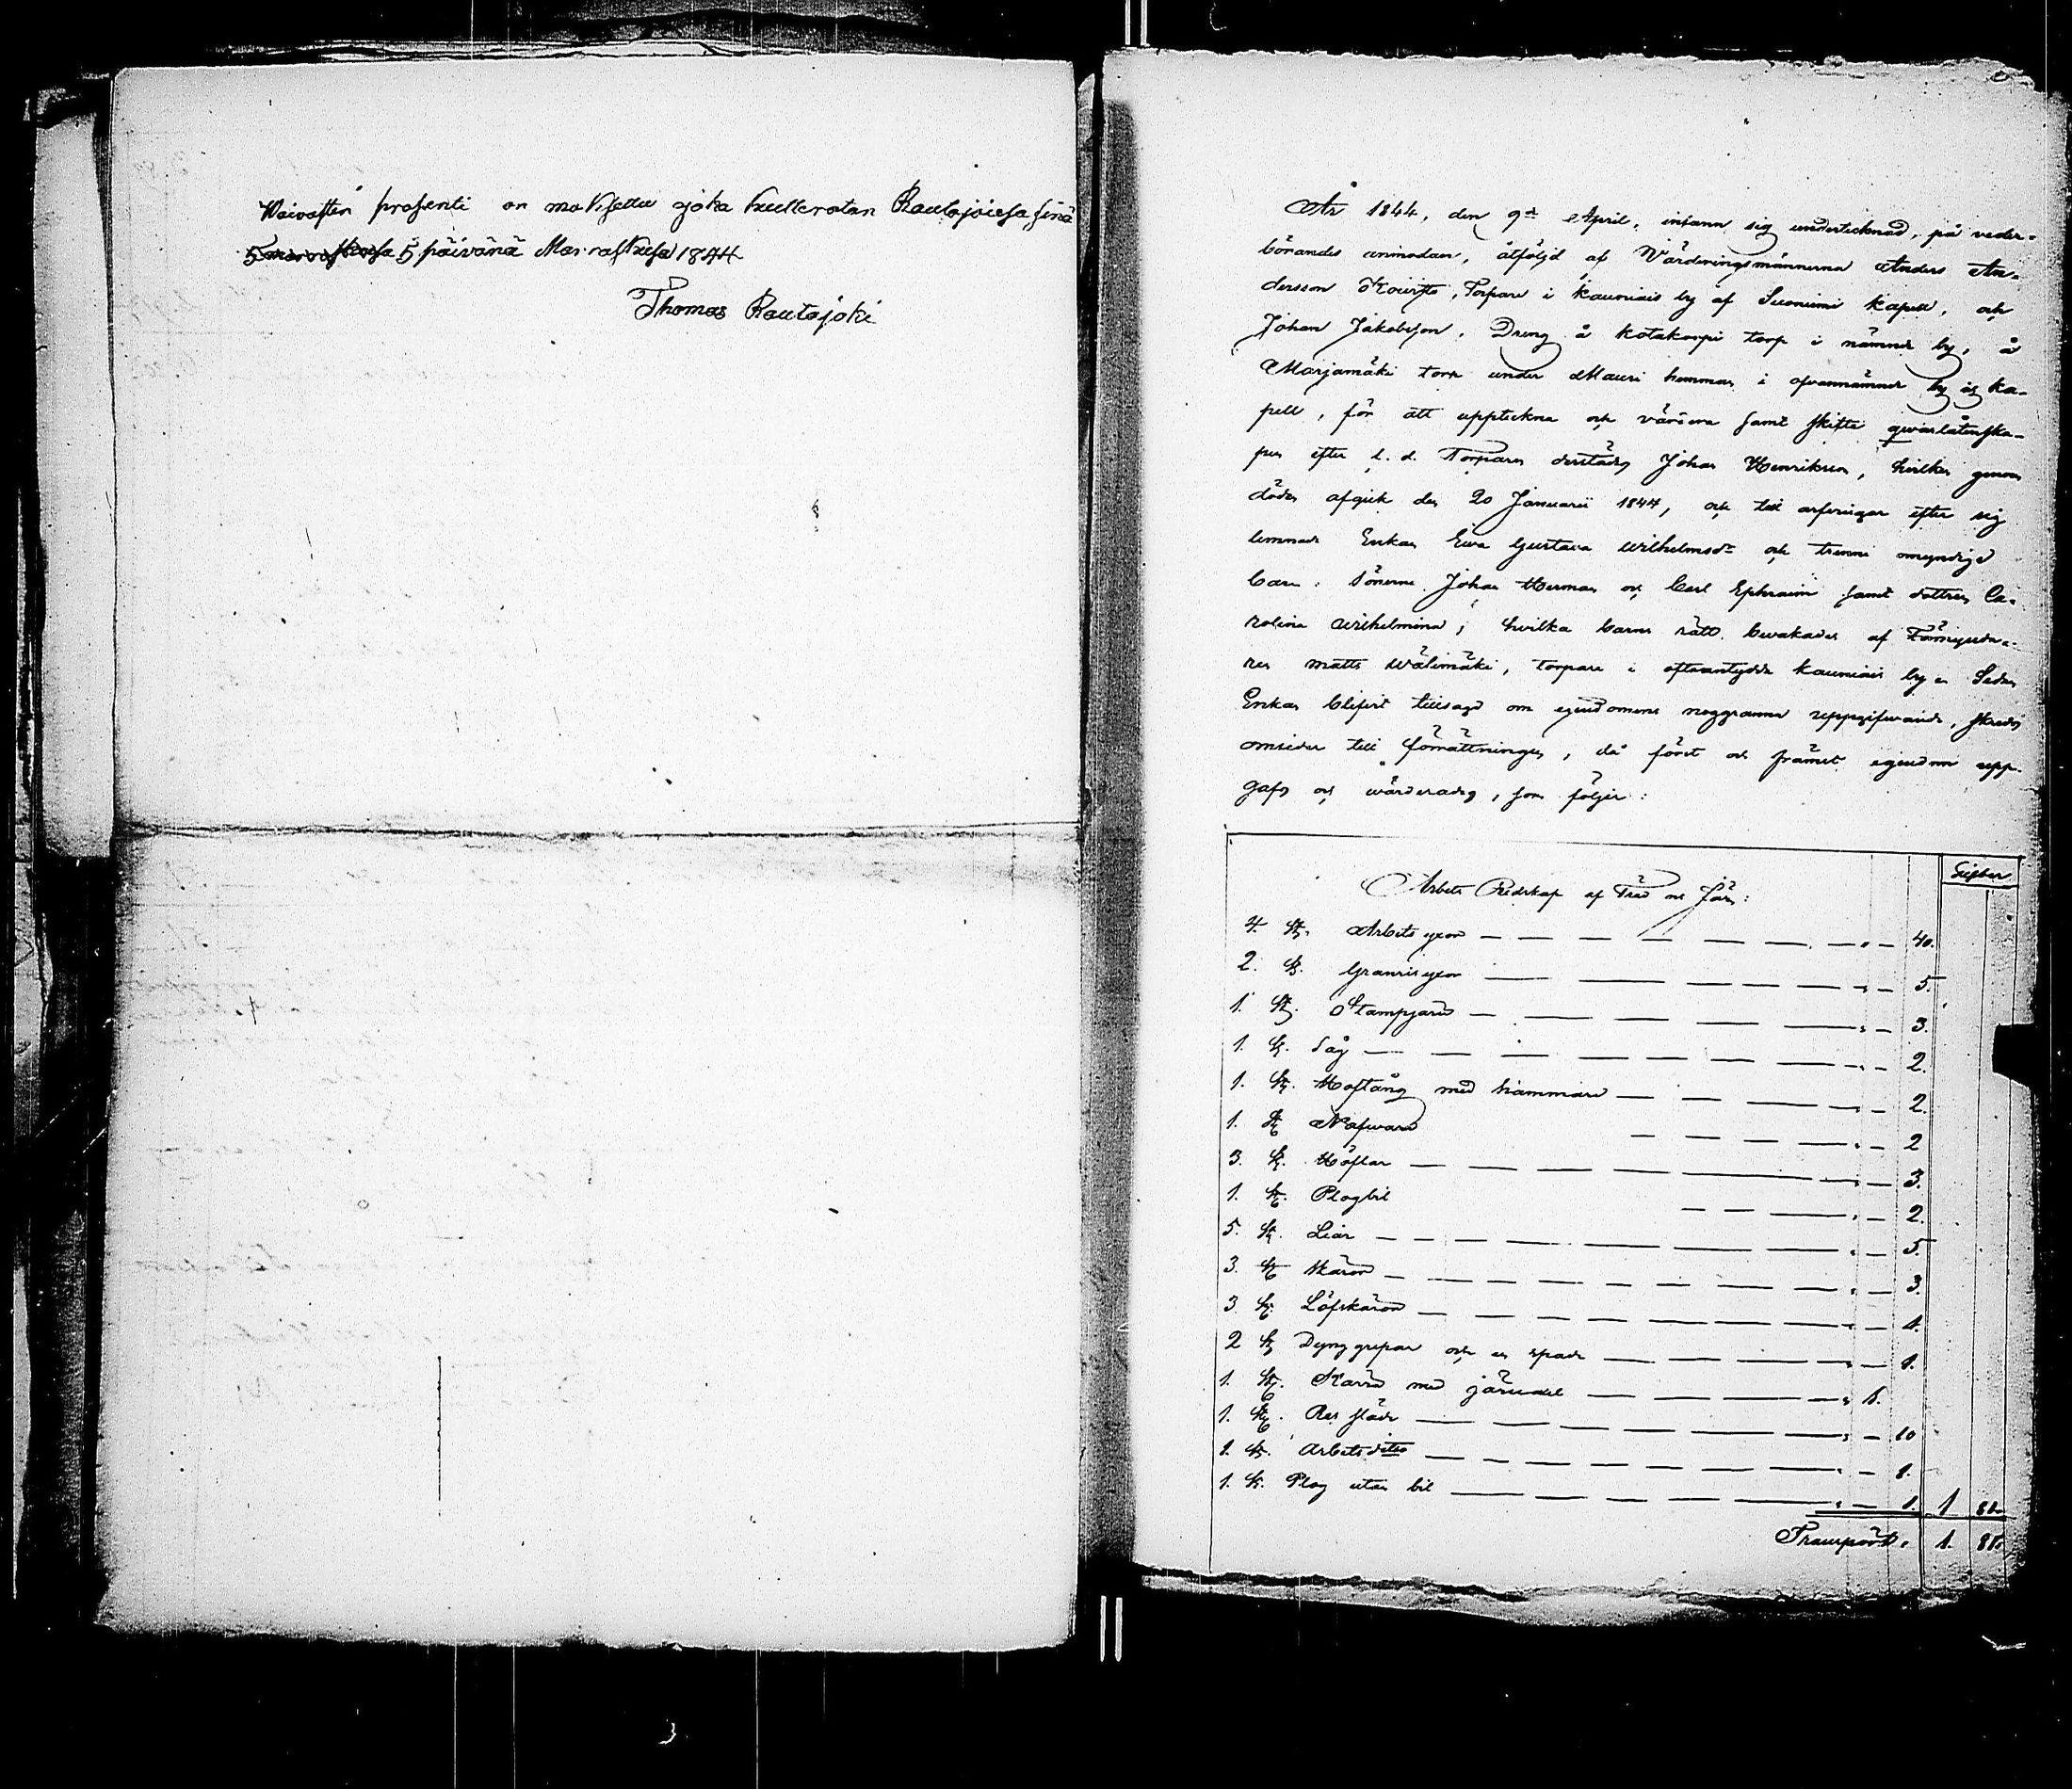 Waivasten prosenti on maksettu joka kulleratan Rautajoiesa sinä
5 päivänä Marraskuusa 1844
Thomas Rautajoki
År 1844, den 9de April, infann sig undertecknad, på veder-
börandes anmodan, åtföljd af Värderingsmännerna Anders An-
dersson Kouista, Torpare i Kauniais by af Suoniemi Kapell, och
Johan Jakobsson, Dreng å Kotakorpi torp i nämnde by, å
Marjamäki torp under Mauri hemman i ofvannämnde by och Ka-
pell, för att uppteckna och värdera samt skifta qwarlåtenska-
pen efter f. d. Torparen derstädes Johan Henriksson, hvilken genom
döden afgick den 20 Januarii 1844, och till arfvingar efter sig
lemnade Enkan Ewa Gustava Wilhelmsdr och trenne omyndige
barn: Sönerne Johan Herman och Carl Ephraim samt dottren Ca-
rolina Wilhelmina; hvilka barns rätt bevakades af Förmynda-
ren Matts Wälimäki, torpare i oftvantydde Kauniais by. Sedan
Enkan blifvit tillsagd om egendomens noggranna uppgifvande, skreds
omsider till förrättningen, då först och främst egendom upp-
gafs och wärderades, som följer:
Silfver
Arbets Redskap af Träd och Järn:
4. st. Arbets yxor — — — „ — 40.
2. st. Granris yxor — — — „ — 5.
1. st. Stampjärn — — — „ — 3.
1. st. Såg — — — „ — 2.
1. st. Hoftång med hammare — — — „ — 2.
1. st. Nafvare — — — „ — 2
3. st. Höflar — — — „ — 3.
1. st. Plogbil — — — „ — 2.
5. st. Liar — — — „ — 5.
3. st. Skäror — — — „ — 3.
3. st. Löfskäror — — — „ — 1.
2 st. Dynggrepar och en spade — — — „ — 1.
1. st. Kärra med järnaxel — — — „ 1.
1. st. Res släde — — — „ — 10
1. st. Arbets dito — — — „ — 1.
1. st. Plog utan bil — — — „ — 1. 1 81.
Transport. 1. 81.